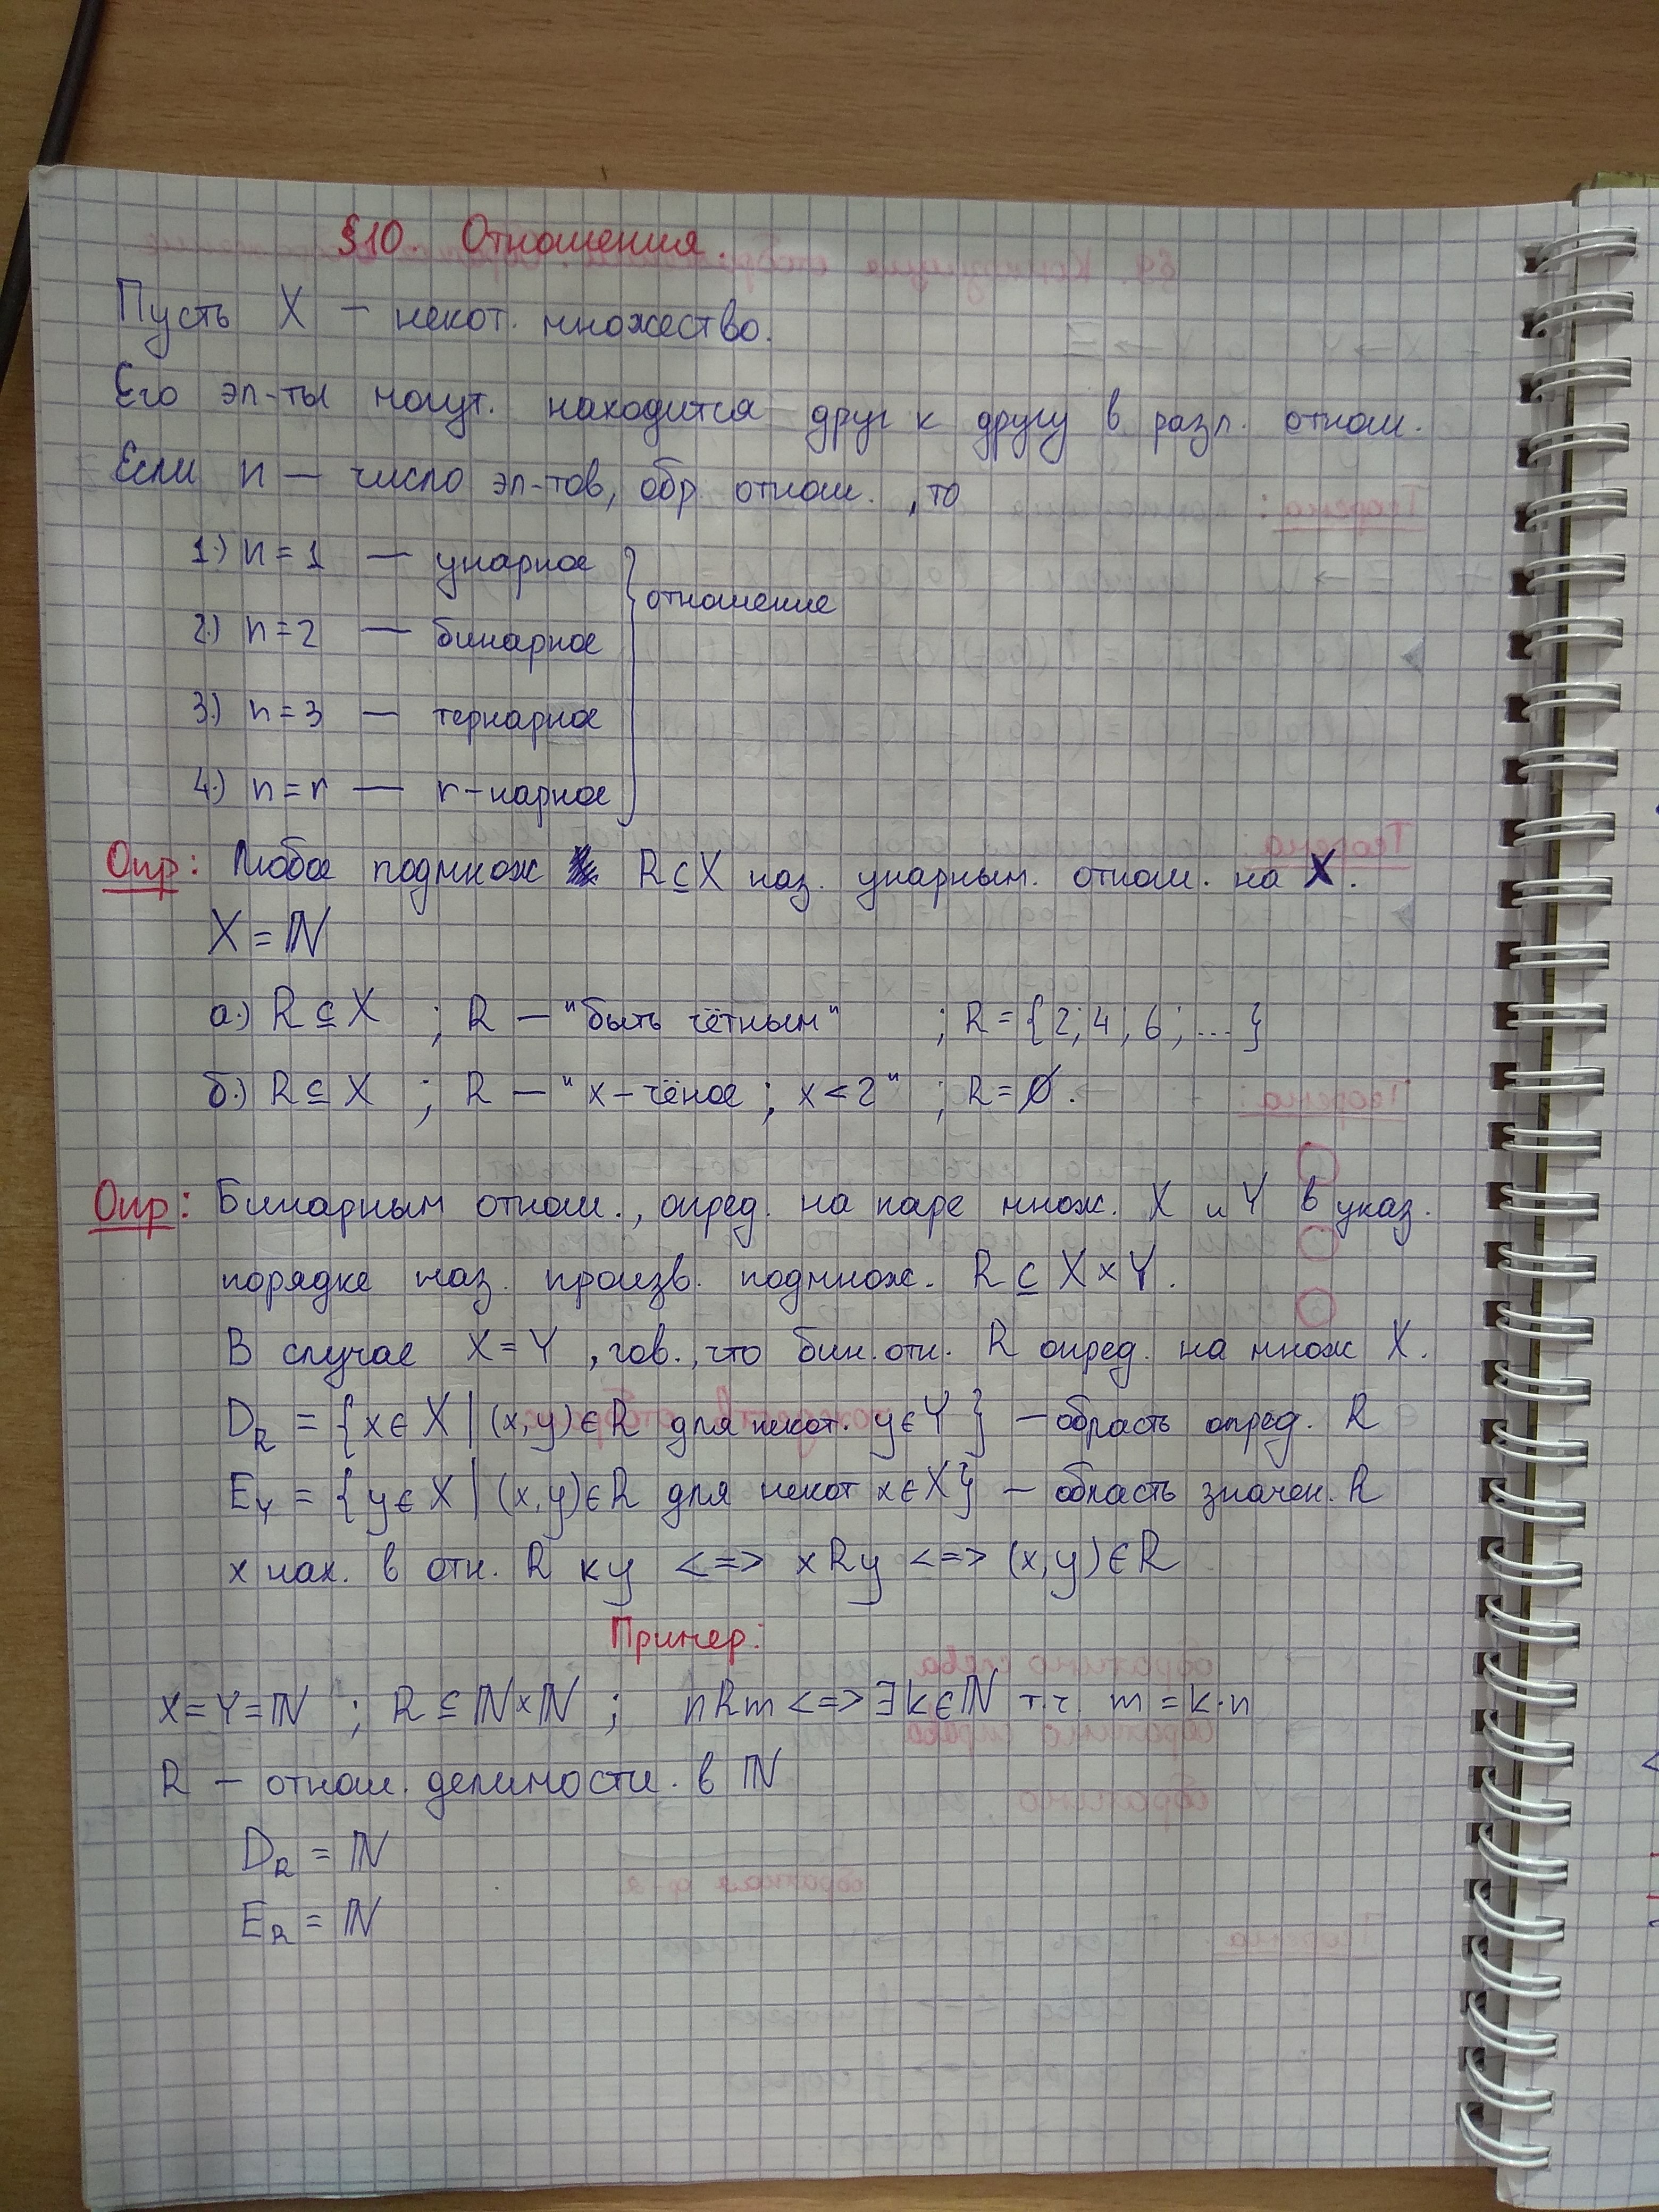 §10. Отношения.
Пусть X – некот. множество.
Его эл-ты могут. находится друг к другу в разл. отнош.
Если n — число эл-тов, обр. отнош. , то
1.) n = 1 — унарное
отношение
2.) n = 2 — бинарное
3.) n = 3 — тернарное
4.) n = r — r-нарное
Опр: Любое подмнож R ⊆ X наз. унарным. отнош. на X.
X = ℕ
а.) R ⊆ X ; R — "быть чётным" ; R = {2; 4; 6; ...}
б.) R ⊆ X ; R — "x – чёное ; x < 2" ; R = ∅.
Опр: Бинарным отнош., опред. на паре множ. X и Y в указ.
порядке наз. произв. подмнож. R ⊆ X × Y.
В случае X = Y , гов., что бин. отн. R опред. на множ X.
D_R = {x ∈ X | (x, y) ∈ R для некот. y ∈ Y} – область опред. R
E_Y = {y ∈ X | (x, y) ∈ R для некот x ∈ X} – область значен. R
x нах. в отн. R к y <=> xRy <=> (x, y) ∈ R
Пример:
X = Y = ℕ ; R ⊆ ℕ × ℕ ; nRm <=> ∃ k ∈ ℕ т.ч. m = k · n
R – отнош. делимости. в ℕ
D_R = ℕ
E_R = ℕ